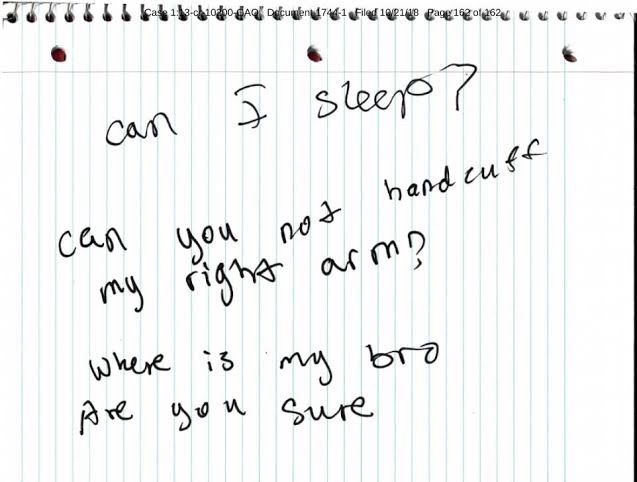 Case 1:13-cr-10200-GAO Document 1744-1 Filed 10/21/18 Page 162 of 162
can I sleep?
can you not handcuff
my right arm?
Where is my bro
Are you sure